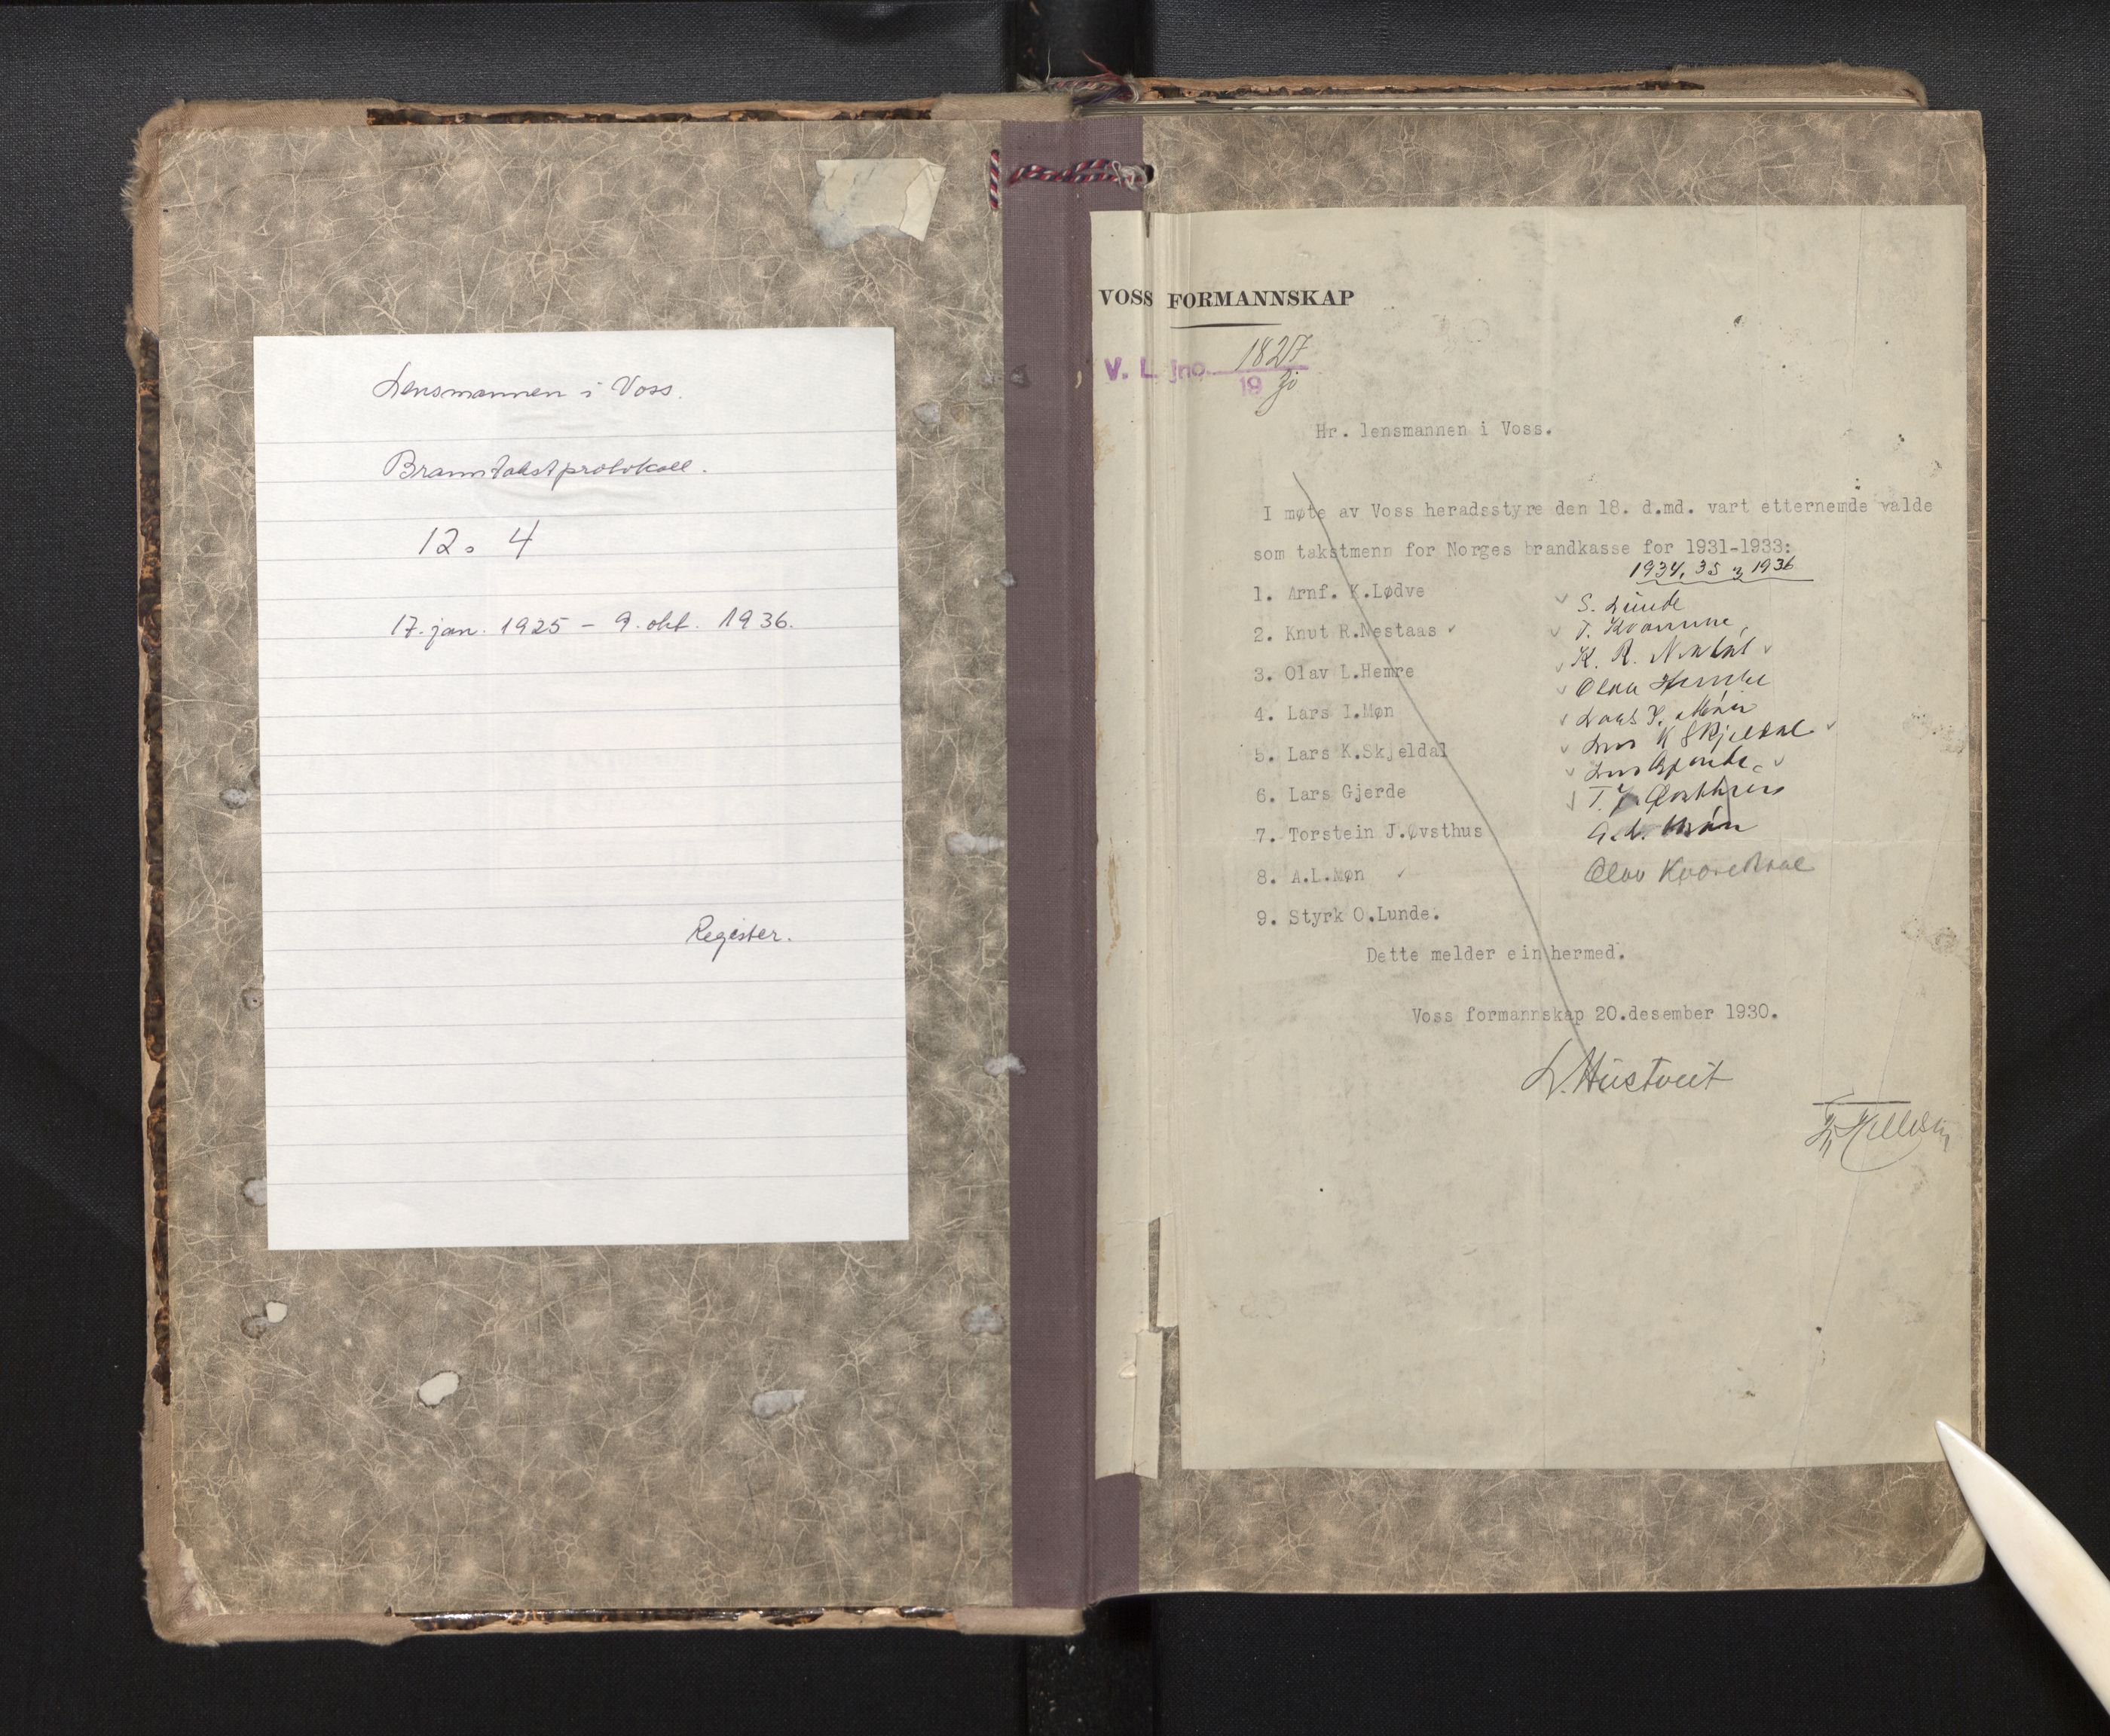 Lensmannen i Voss.
Branntakstprotokoll.
12. 4
17. jan. 1925 - 9. okt. 1936.
Register.
VOSS FORMANNSKAP
V. L. jno. 1827
19 30
Hr. lensmannen i Voss.
I møte av Voss heradsstyre den 18. d.md. vart etternemde valde
som takstmenn for Norges brandkasse for 1931-1933:
1934, 35 og 1936
1. Arnf. K.Lødve
S. Lunde
2. Knut R.Nestaas ✓
T. Kvamme
3. Olav L.Hemre
K. R.
4. Lars I.Møn
Olav Hemre
5. Lars K.Skjeldal
Lars I. Møn
6. Lars Gjerde
Lars K Skjeldal
7. Torstein J.Øvsthus
Lars Gjerde
8. A.L.Møn ✓
T. J. Øvsthus
9. Styrk O.Lunde.
A. L. Møn
Olav
Dette melder ein hermed.
Voss formannskap 20.desember 1930.
L. Hustveit